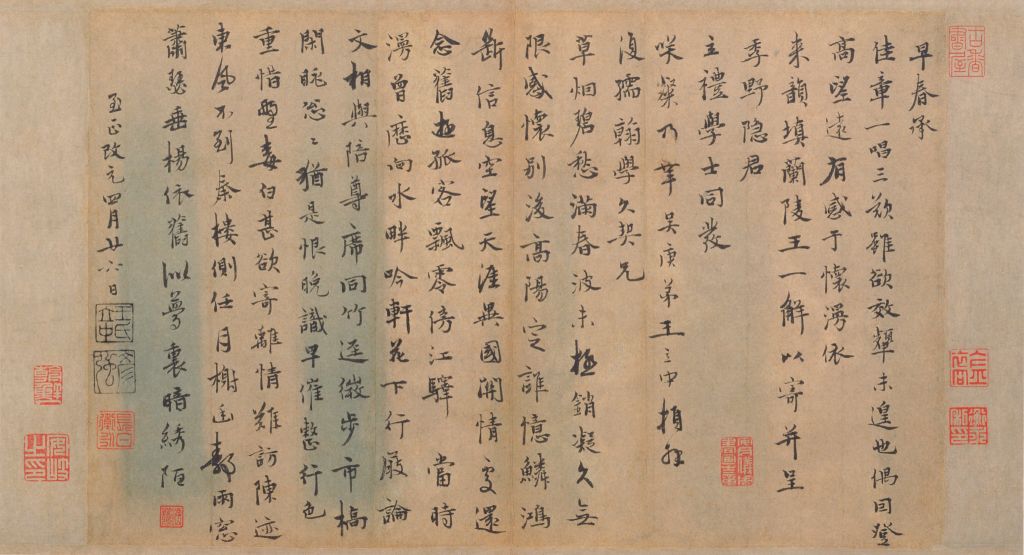 早春承
佳章一唱三歎雖欲效顰未遑也偶因登
高望遠有感于懷漫依
來韻填蘭陵王一解以寄并呈
季野隐君
主禮學士同發
咲粲乃幸吳庚弟王立中頓拜
復孺翰學久契兄
草烟碧愁滿春波未極銷凝久無
限感懷别後高陽定誰憶鱗鴻
斷信息空望天涯異國關情處還
念舊逰孤客飄零傍江驛 當時
漫曾歴向水畔吟軒花下行厩論
文相與陪尊席同竹逕緩步市橋
閑眺忩〻猶是恨晚識早催愁行色
重惜白甚欲寄離情難訪陳迹
東風不到秦樓側任月榭雨窓
蕭瑟垂楊依舊似夢裏暗綉陌
至正改元四月廿六日
王氏立中
彦強